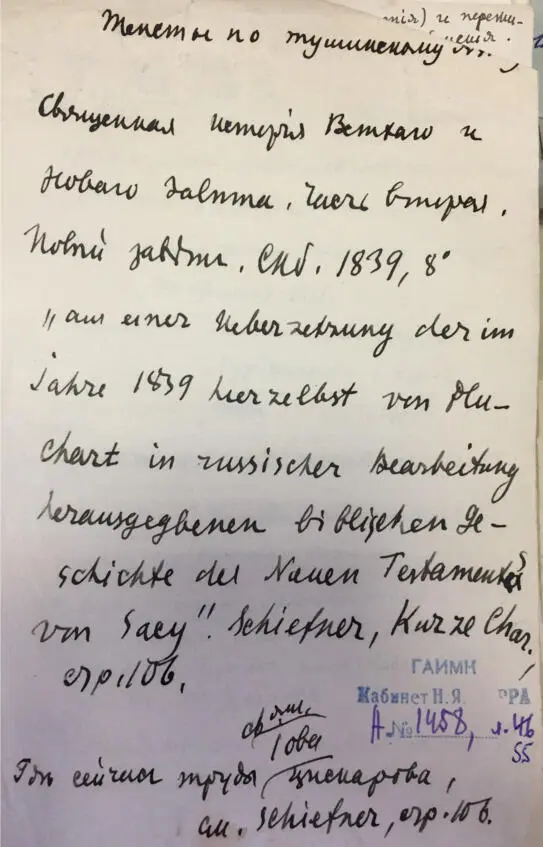 нія) и переж-
Тексты по тушинскому яз.
Священная исторія Ветхаго и
Новаго Завѣта. Часть вторая.
Новый завѣтъ. Спб. 1839, 8°
„aus einer Ueberzetzung der im
Jahre 1839 hierzelbst von Plu-
chart in russischer Bearbeitung
herausgegbenen biblischen Ge-
schichte des Neuen Testamentes
von Sacy". Schiefner, Kurze Char.,
стр. 106.
ГАИМК
Кабинет Н.Я. РРА
А № 1458, л. 46
55
Іова
Гдѣ сейчас труды Цискарова,
см. Schiefner, стр. 106.